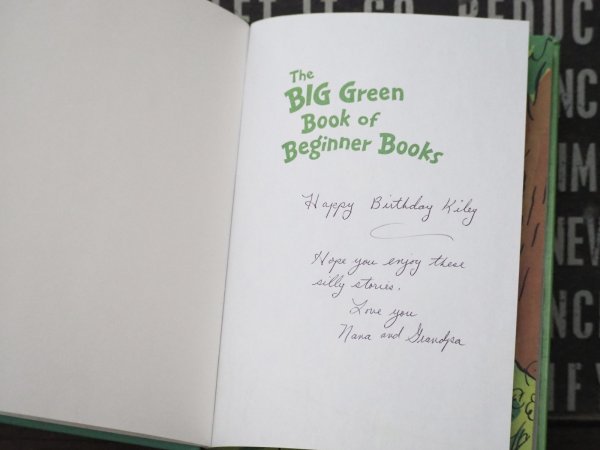 The
BIG Green
Book of
Beginner Books
Happy Birthday Kiley
Hope you enjoy these
silly stories.
Love you
Nana and Grandpa
LET IT GO. REDUC
NC
IM
NEW
NC
IF Y